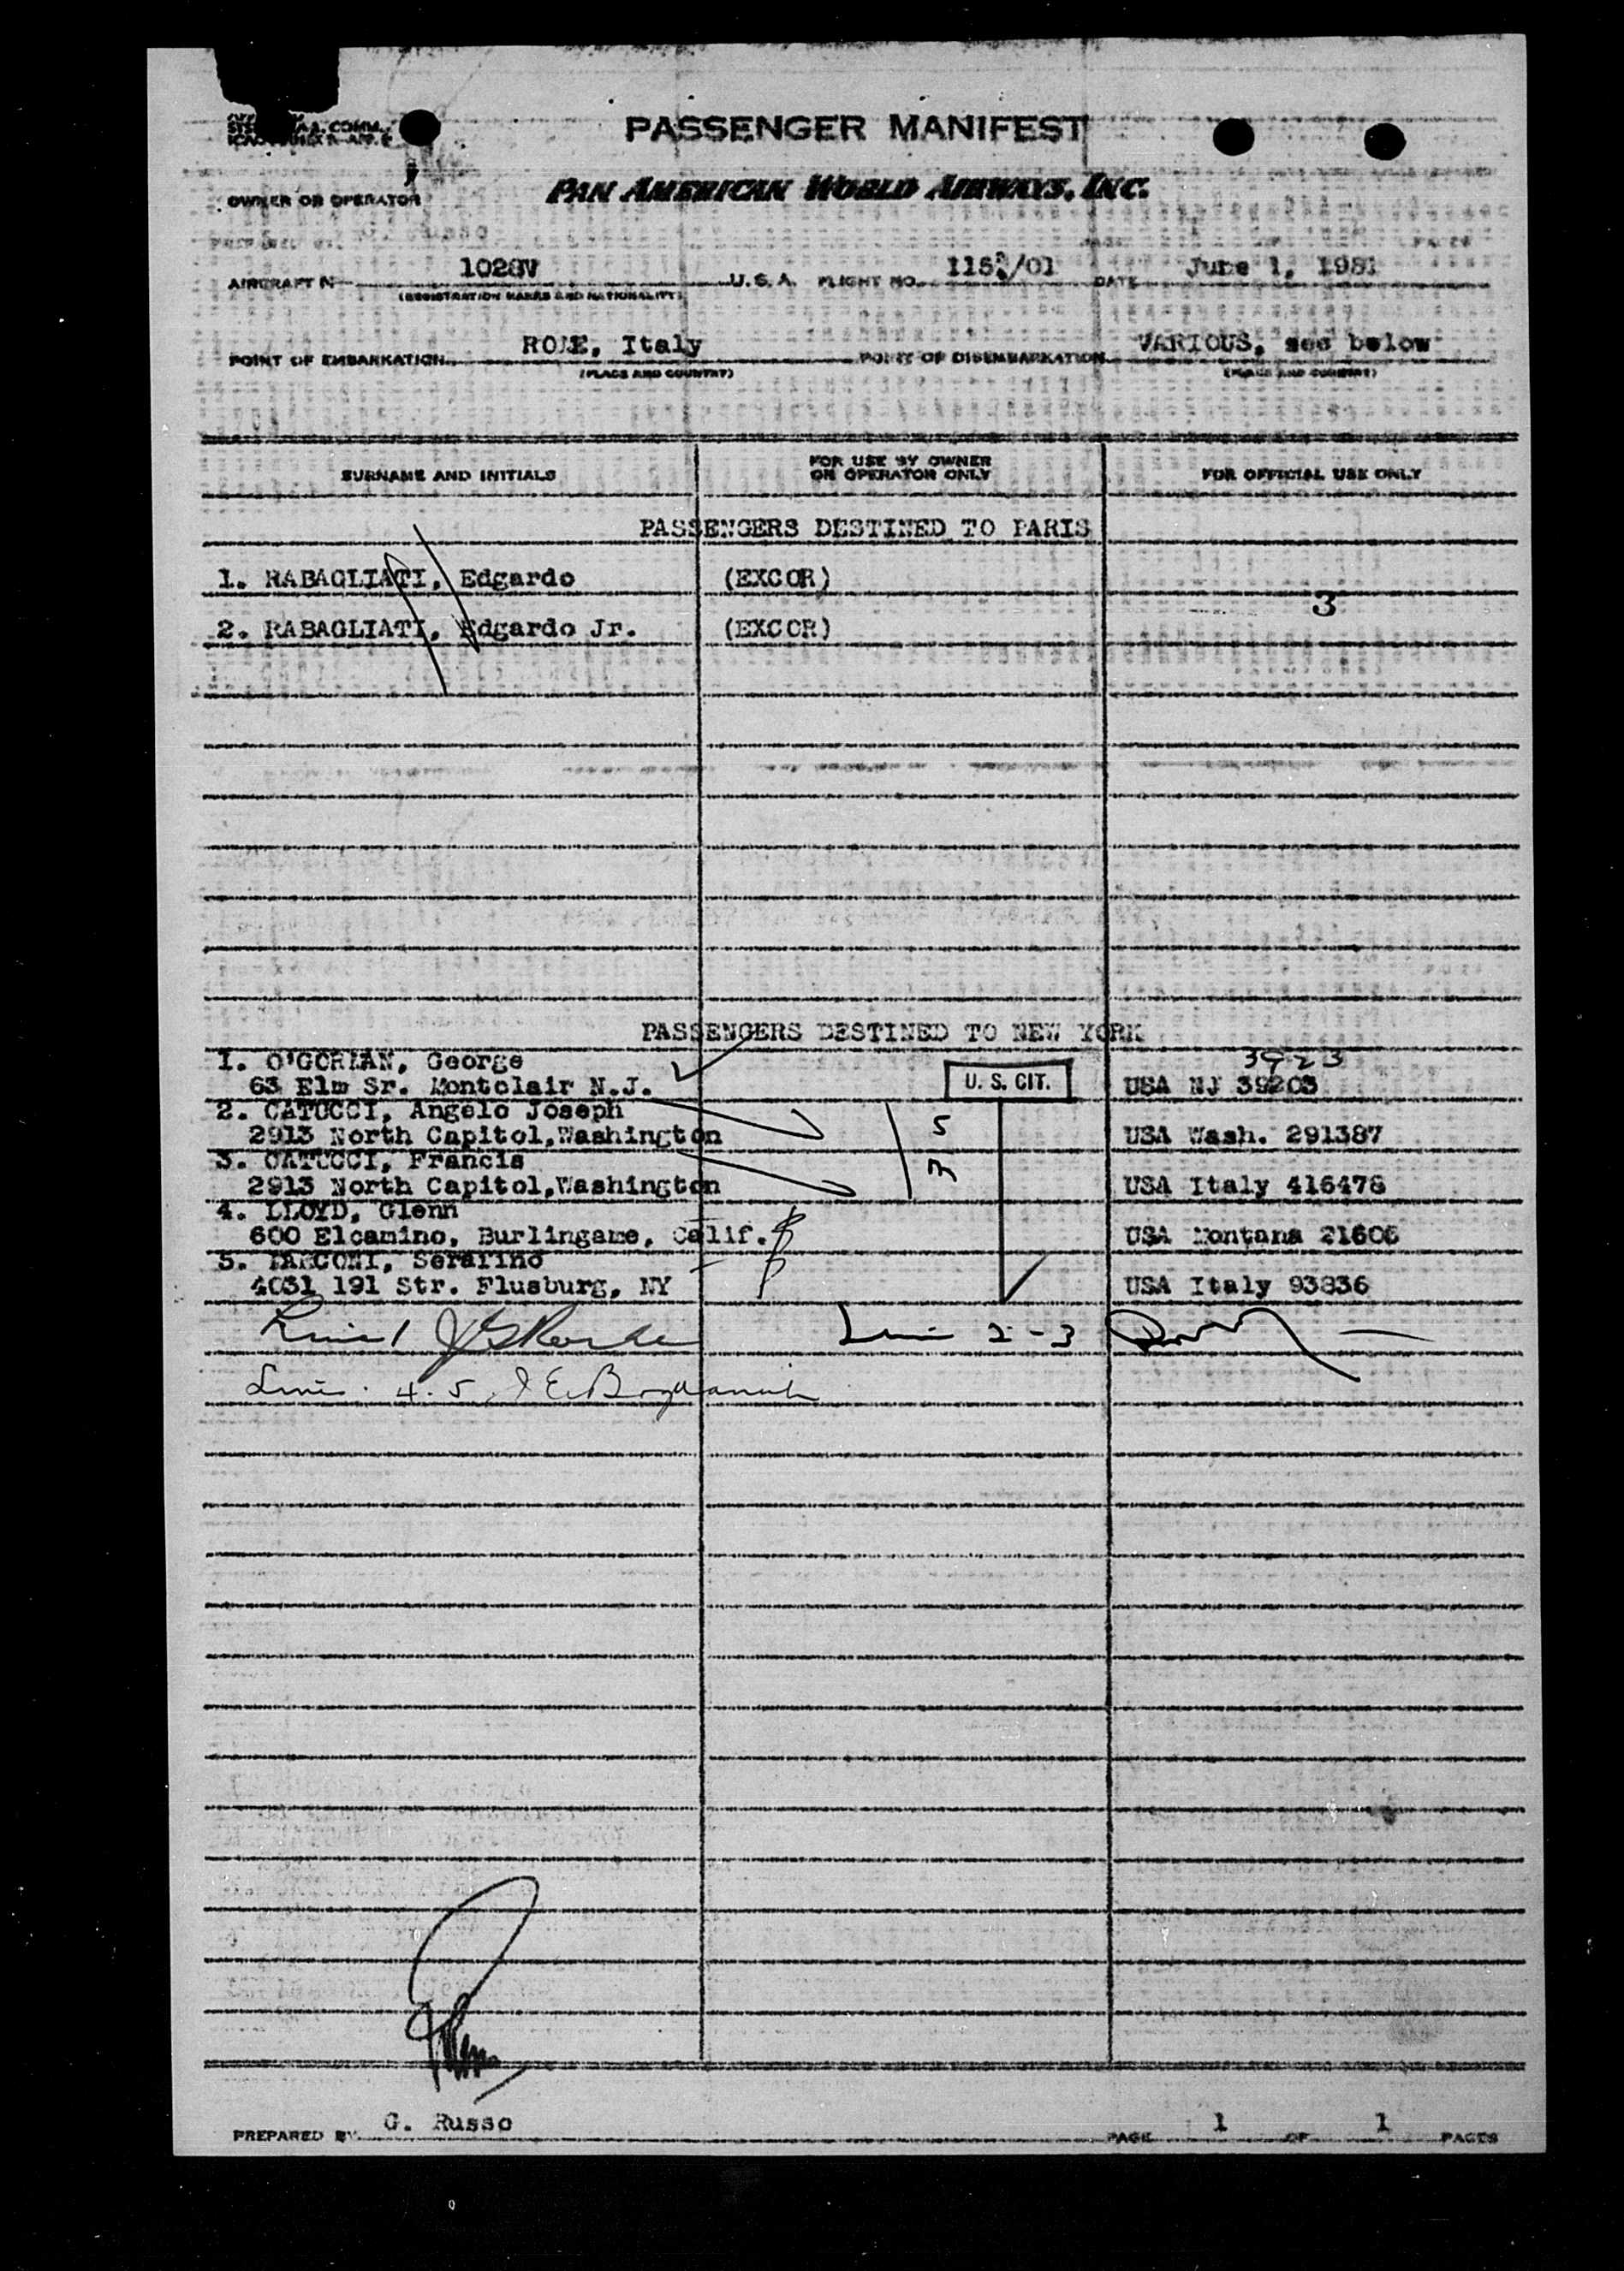 PASSENGER MANIFEST
OWNER OR OPERATOR
PAN AMERICAN WORLD AIRWAYS, INC.
AIRCRAFT N 1028V U.S.A. FLIGHT NO. DATE June 1, 1951
(REGISTRATION MARKS AND NATIONALITY)
POINT OF EMBARKATION ROME, Italy POINT OF DISEMBARKATION VARIOUS, see below
(PLACE AND COUNTRY) (PLACE AND COUNTRY)
SURNAME AND INITIALS FOR USE BY OWNER OR OPERATOR ONLY FOR OFFICIAL USE ONLY
PASSENGERS DESTINED TO PARIS
1. RABAGLIATI, Edgardo (EXCOR)
3
2. RABAGLIATI, Edgardo Jr. (EXCOR)
PASSENGERS DESTINED TO NEW YORK
1. O'GORMAN, George 3923
63 Elm Sr. Montclair N.J. U. S. CIT. USA NJ 39203
2. CATUCCI, Angelo Joseph
2913 North Capitol,Washington 5 USA Wash. 291387
3. CATUCCI, Francis
2913 North Capitol,Washington USA Italy 416478
4. LLOYD, Glenn
600 Elcamino, Burlingame, Calif. USA Montana 21606
5. Serafino
4031 191 Str. Flusburg, NY USA Italy 93836
2-3
4.5
PREPARED BY G. Russo PAGE 1 OF 1 PAGES